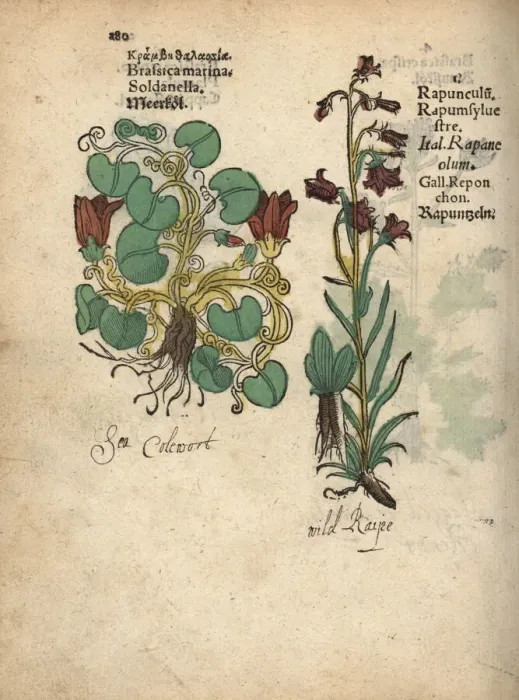 280
Κράμβη θαλασσία.
Brassica marina.
Soldanella.
Meerköl.
Rapunculū.
Rapumsylue
stre.
Ital. Rapane
olum.
Gall. Repon
chon.
Rapuntzeln.
Sea Colewort
wild Raipe